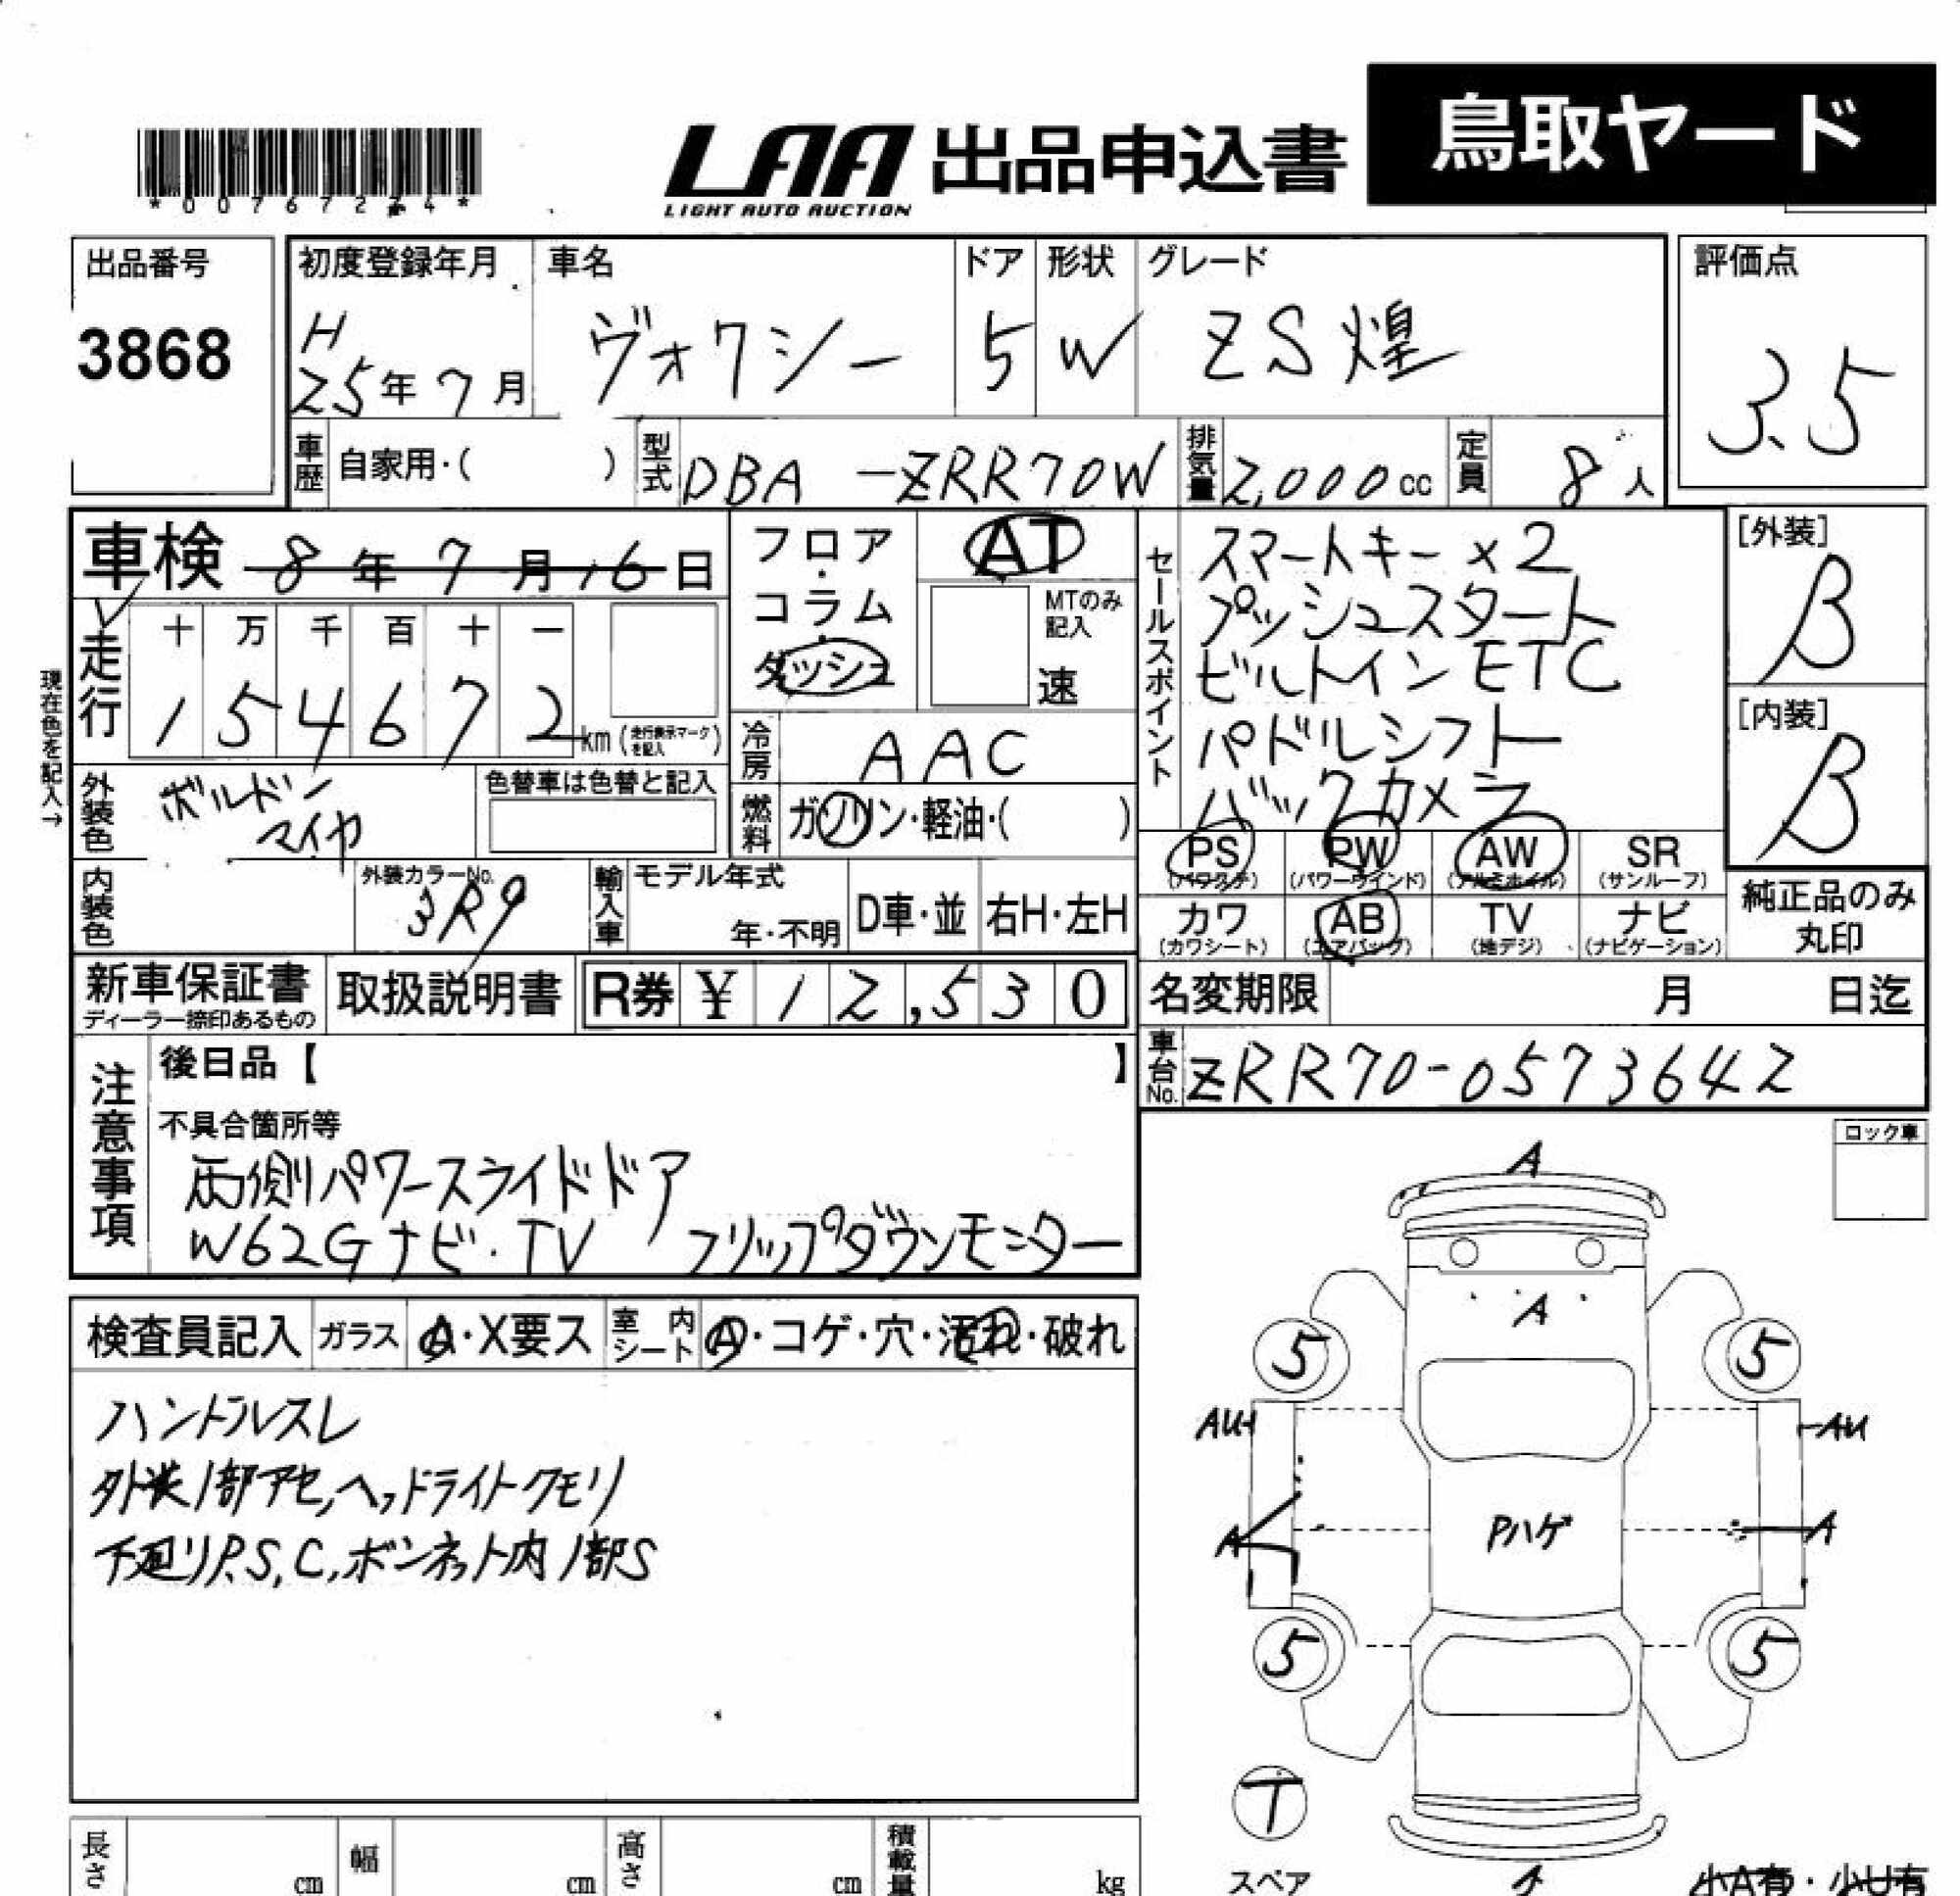 鳥取ヤード
LAA 出品申込書
LIGHT AUTO AUCTION
出品番号
3868
初度登録年月
H
25年7月
車名
ヴォクシー
ドア
5
形状
W
グレード
ZS煌
評価点
3.5
車歴 自家用・( )
型式 DBA -ZRR70W
排気量 2,000cc
定員 8人
車検 8年7月16日
フロア・コラム・ダッシュ
AT
MTのみ記入
速
セールスポイント
スマートキー×2
プッシュスタート
ビルトインETC
パドルシフト
バックカメラ
[外装]
B
[内装]
B
現在色を記入→
走行
十 万 千 百 十 一
1 5 4 6 7 2 km (走行表示マークを記入)
冷房 AAC
外装色 ボルドーマイカ
色替車は色替と記入
燃料 ガソリン・軽油・( )
PS (パワステ)
PW (パワーウインド)
AW (アルミホイル)
SR (サンルーフ)
カワ (カワシート)
AB (エアバッグ)
TV (地デジ)
ナビ (ナビゲーション)
純正品のみ丸印
内装色
外装カラーNo.
3R9
輸入車
モデル年式
年・不明
D車・並
右H・左H
新車保証書
ディーラー捺印あるもの
取扱説明書
R券 ¥ 12,530
名変期限 月 日迄
車台No. ZRR70-0573642
注意事項
後日品【 】
不具合箇所等
両側パワースライドドア
W62Gナビ・TV フリップダウンモニター
ロック車
検査員記入
ガラス A・X要ス
室内シート A・コゲ・穴・汚れ・破れ
ハンドルスレ
外装1部アセ,ヘッドライトクモリ
下廻りP,S,C,ボンネット内1部S
A
A
5
5
AU1
AU
Pハゲ
A
A
5
5
T
スペア
長さ cm
幅 cm
高さ cm
積載量 kg
小A有・少U有